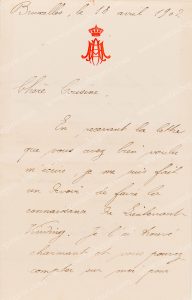 Bruxelles, le 18 avril 1902
Chère Cousine,
En recevant la lettre
que vous avez bien voulu
m'écrire je me suis fait
un devoir de faire la
connaissance du Lieutenant
je l'ai trouvé
charmant et vous pouvez
compter sur moi pour